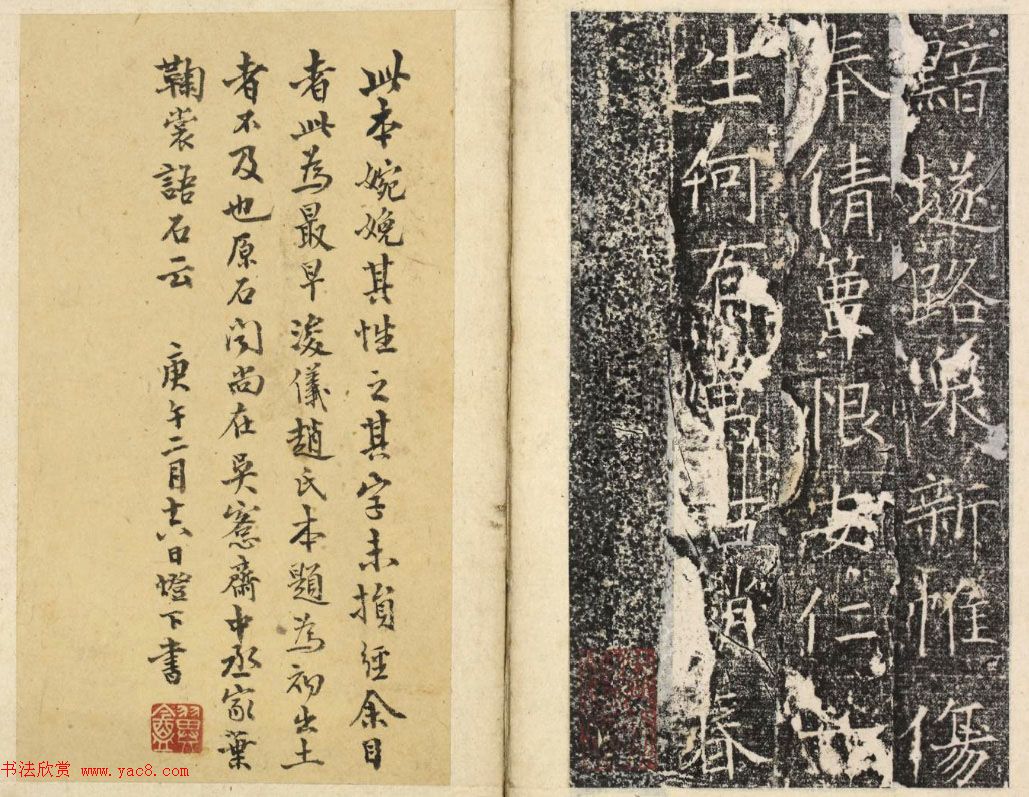 黯燧路淚新帷傷
奉倩簟恨安仁
生何有焉古
春
此本婉娩其性之其字未損經余目
者此為最早浚儀趙氏本題為初出土
者不及也原石聞尚在吳愙齋中丞家葉
鞠裳語石云 庚午二月十六日燈下書
书法欣赏 www.yac8.com